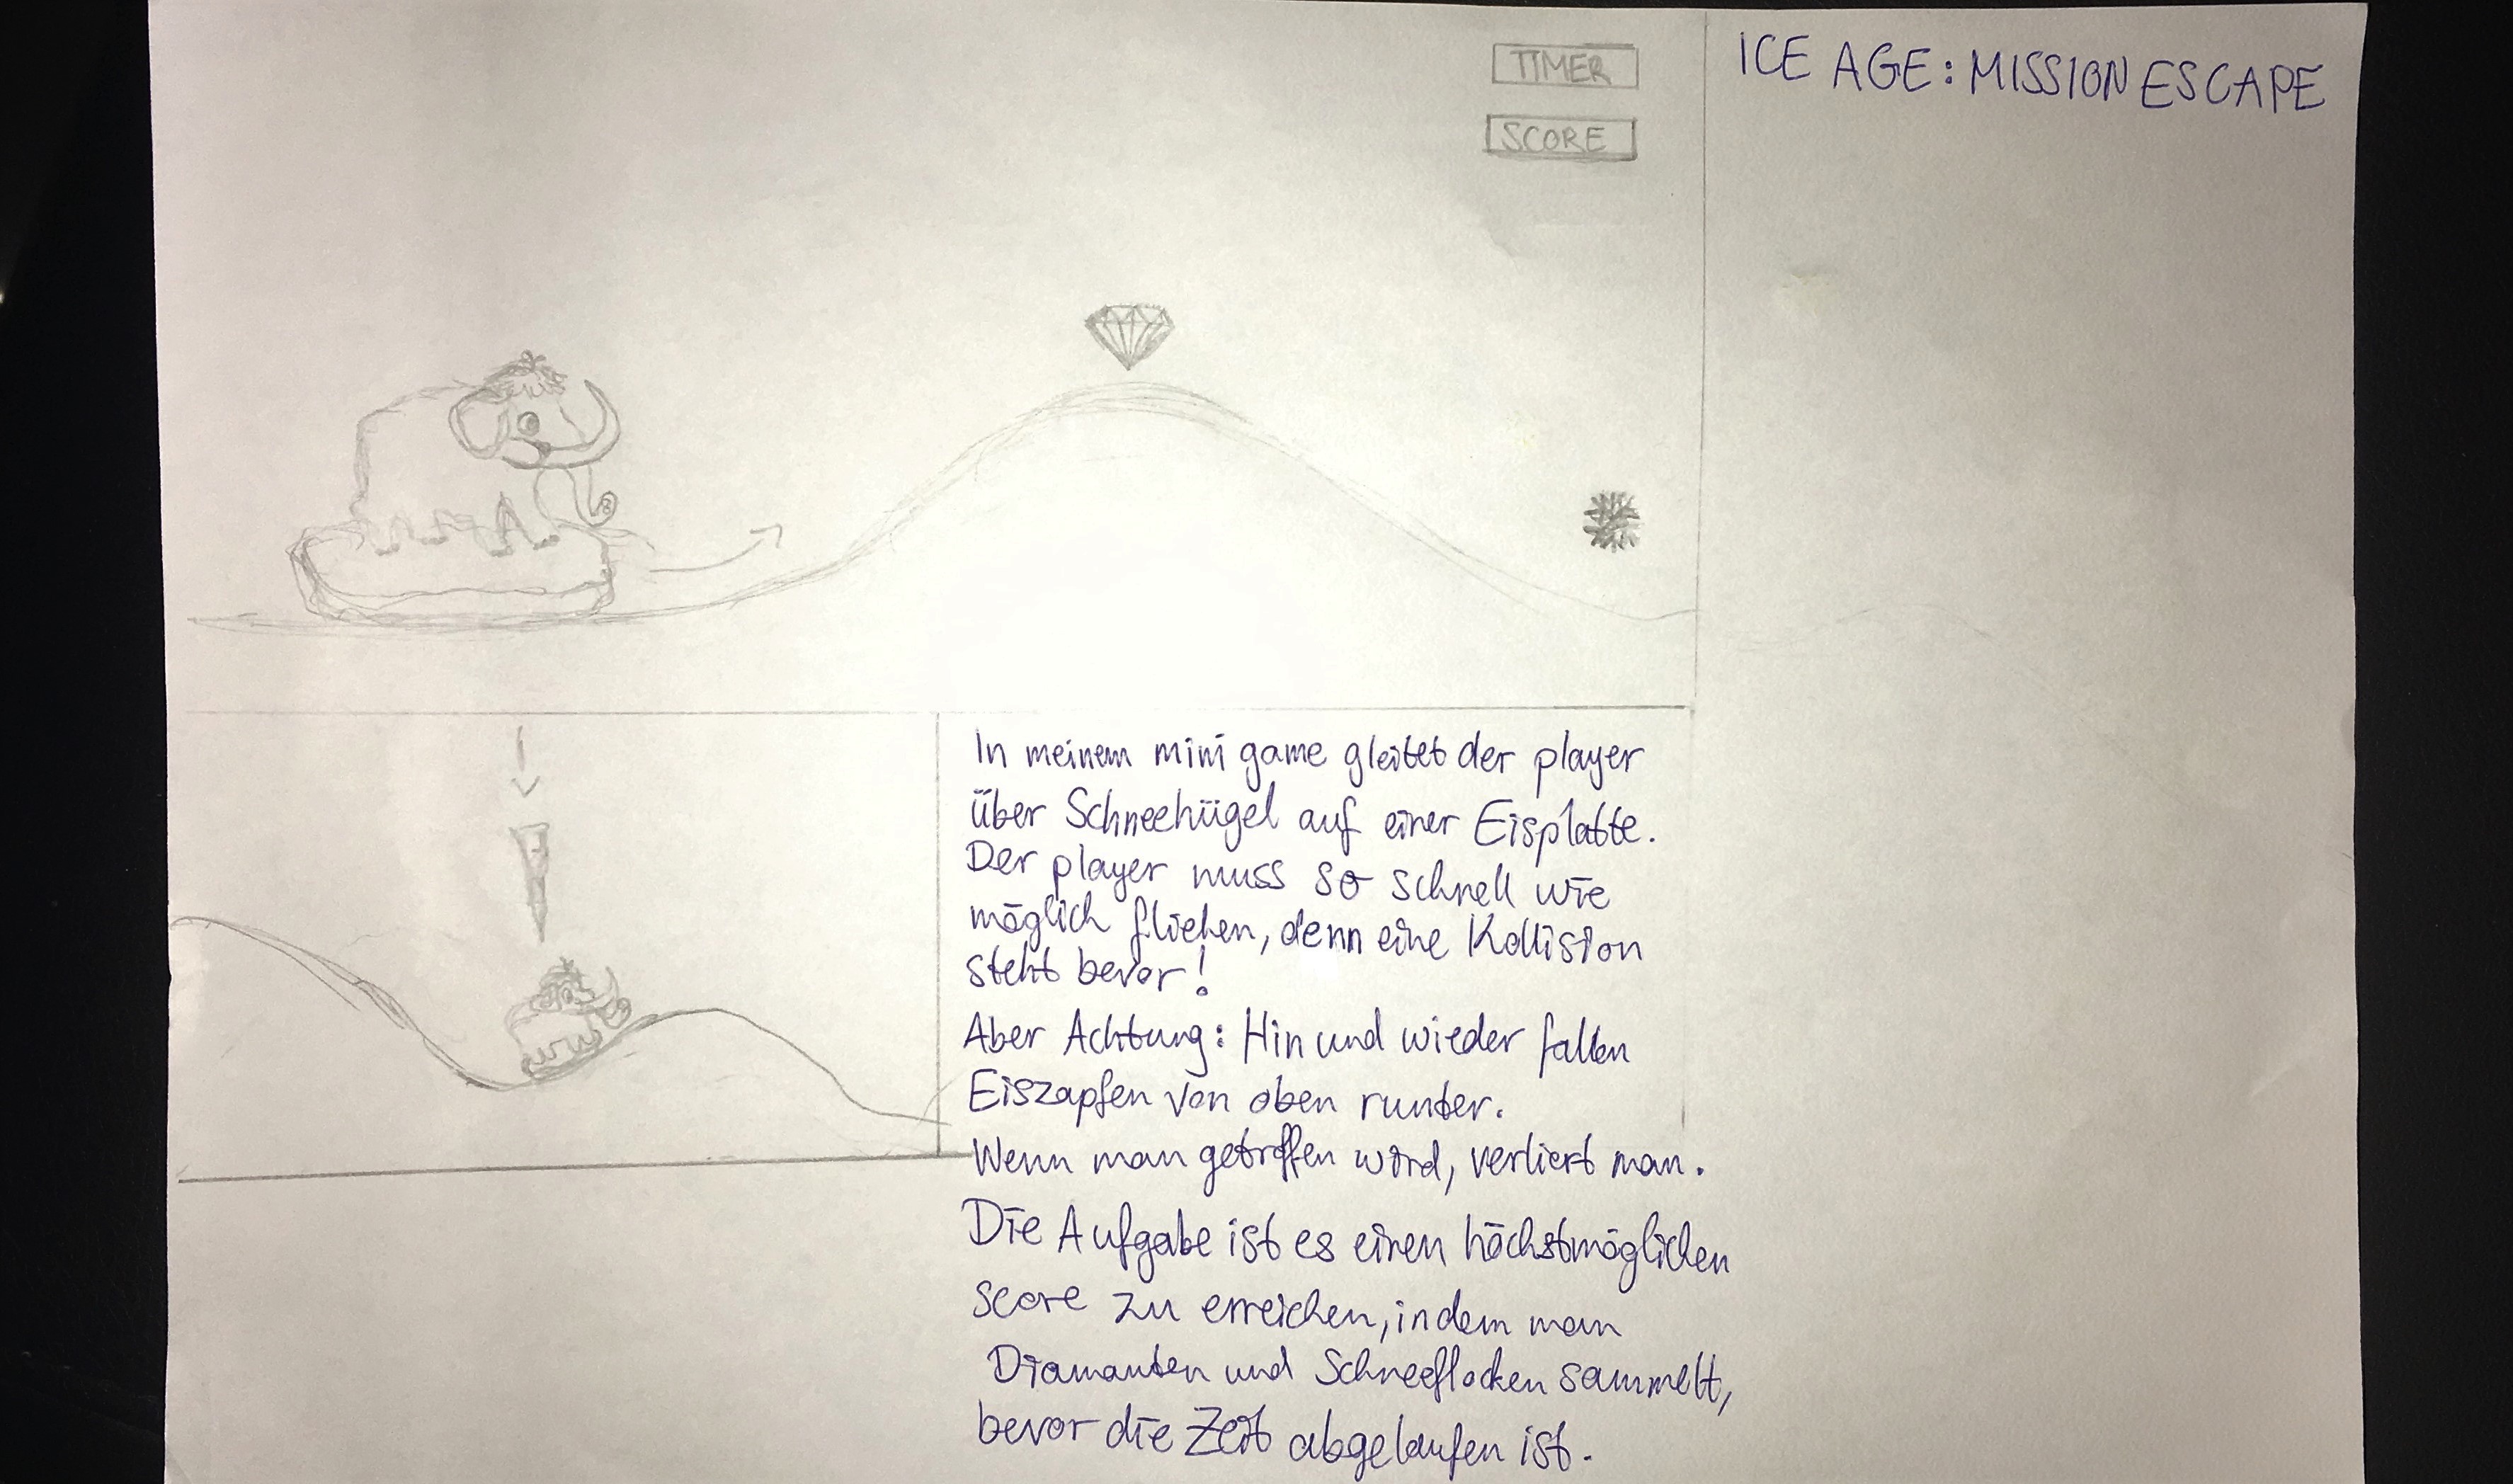 TIMER
SCORE
ICE AGE: MISSION ESCAPE
In meinem mini game gleitet der player
über Schneehügel auf einer Eisplatte.
Der player muss so schnell wie
möglich fliehen, denn eine Kollision
steht bevor!
Aber Achtung: Hin und wieder fallen
Eiszapfen von oben runter.
Wenn man getroffen wird, verliert man.
Die Aufgabe ist es einen höchstmöglichen
score zu erreichen, indem man
Diamanten und Schneeflocken sammelt,
bevor die Zeit abgelaufen ist.